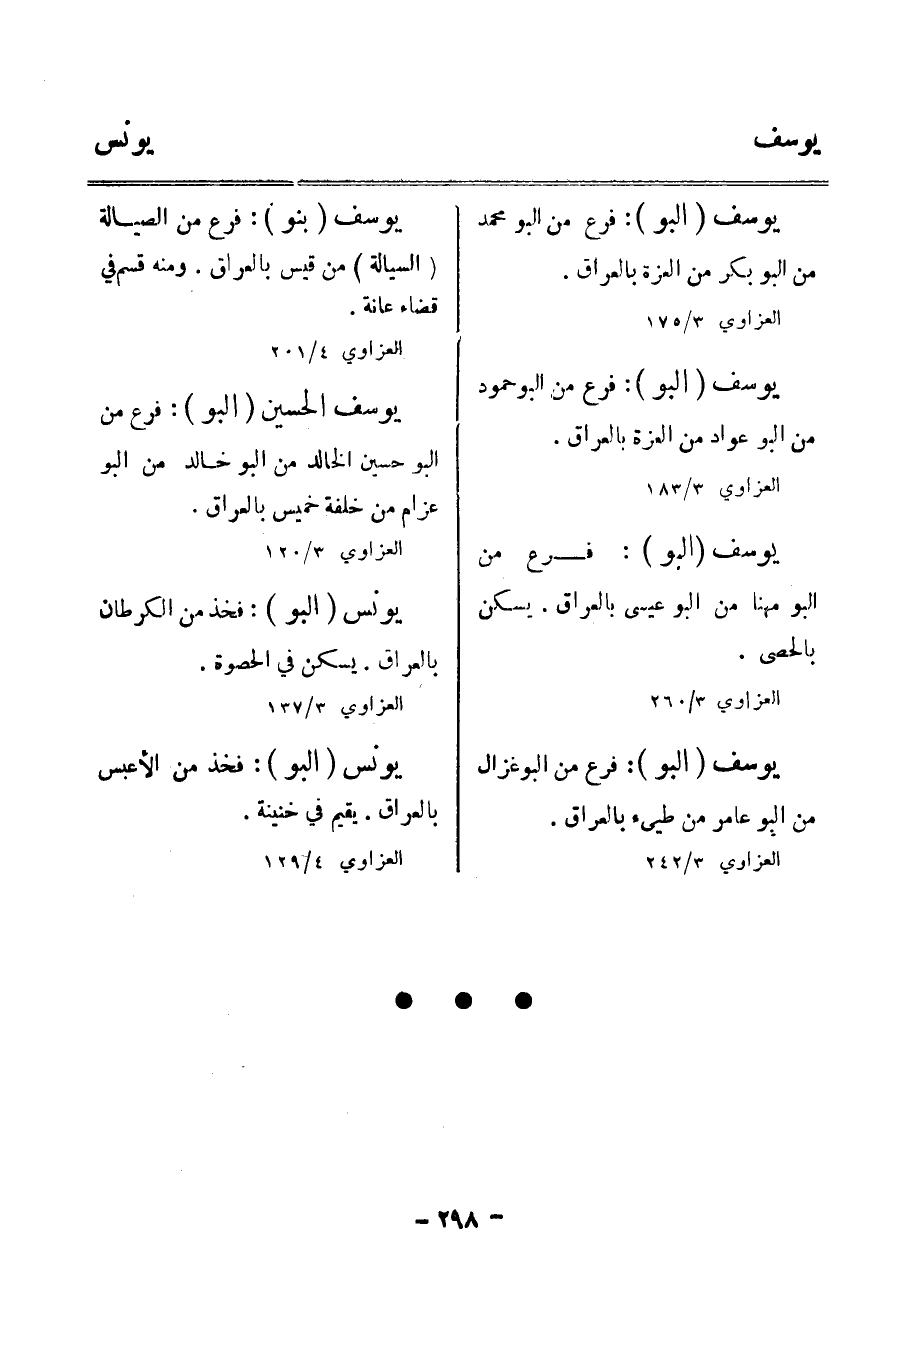 يوسف
يونس
يوسف ( البو ) : فرع من البو محمد
من البو بكر من العزة بالعراق .
العزاوي ١٧٥/٣
يوسف ( البو ) : فرع من البوحمود
من البو عواد من العزة بالعراق .
العزاوي ١٨٣/٣
يوسف (البو ) : فـــرع من
البو مهنا من البو عيسى بالعراق . يسكن
بالحصى .
العزاوي ٢٦٠/٣
يوسف ( البو ) : فرع من البوغزال
من البو عامر من طيىء بالعراق .
العزاوي ٢٤٢/٣
يوسف ( بنو ) : فرع من الصيـالة
( السيالة ) من قيس بالعراق . ومنه قسم في
قضاء عانة .
العزاوي ٢٠١/٤
يوسف الحسين ( البو ) : فرع من
البو حسين الخالد من البو خـالد من البو
عزام من خلفة خميس بالعراق .
العزاوي ١٢٠/٣
يونس ( البو ) : فخذ من الكرطان
بالعراق . يسكن في الحصوة .
العزاوي ١٣٧/٣
يونس ( البو ) : فخذ من الأعبس
بالعراق . يقيم في خنينة .
العزاوي ١٢٩/٤
● ● ●
- ٢٩٨ -